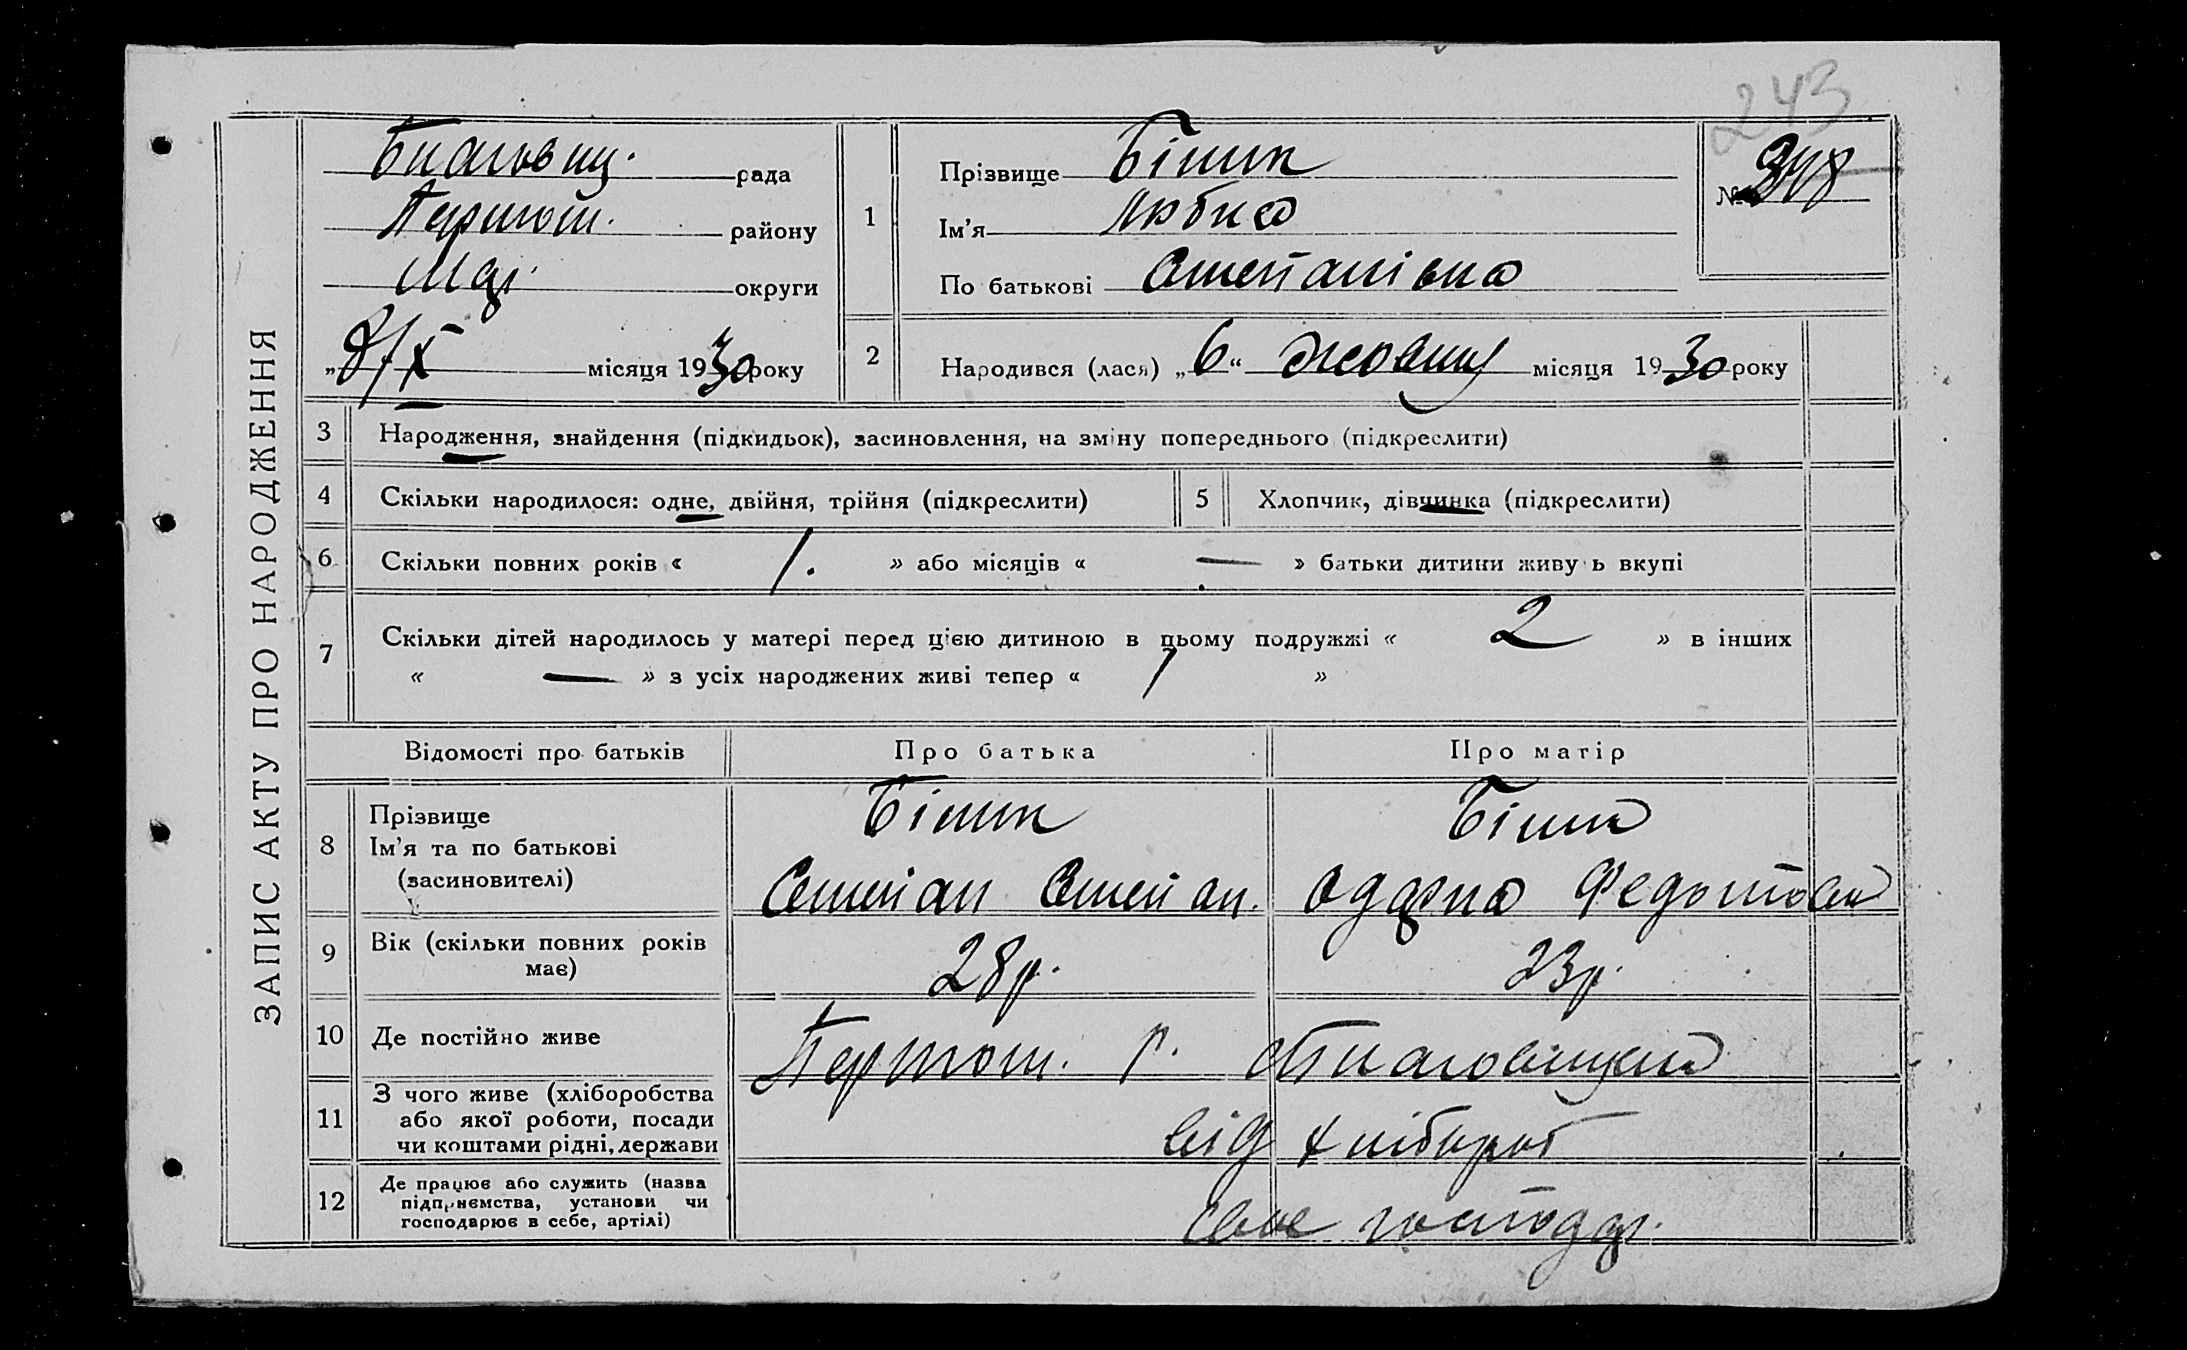 243
Благовіщ. рада
Першот. району
Мар. округи
„8/X місяця 1930 року
1
Прізвище Білик
Ім’я Любка
По батькові Степанівна
№ 348
2
Народився (лася) „6“ жовтня місяця 1930 року
ЗАПИС АКТУ ПРО НАРОДЖЕННЯ
3 Народження, знайдення (підкидьок), засиновлення, на зміну попереднього (підкреслити)
4 Скільки народилося: одне, двійня, трійня (підкреслити)
5 Хлопчик, дівчинка (підкреслити)
6 Скільки повних років « 1. » або місяців « — » батьки дитини живуь вкупі
7 Скільки дітей народилось у матері перед цією дитиною в цьому подружжі « 2 » в інших
« — » з усіх народжених живі тепер « 1 »
Відомості про батьків Про батька Про матір
8 Прізвище
Ім’я та по батькові
(засиновителі)
Білик
Степан Степан.
Білик
Одарка Федотов
9 Вік (скільки повних років
має)
28р. 23р.
10 Де постійно живе
Першот. р. Благовіщен
11 З чого живе (хліборобства
або якої роботи, посади
чи коштами рідні, держави
від хлібороб
12 Де працює або служить (назва
підприємства, установи чи
господарює в себе, артілі)
своє господар.